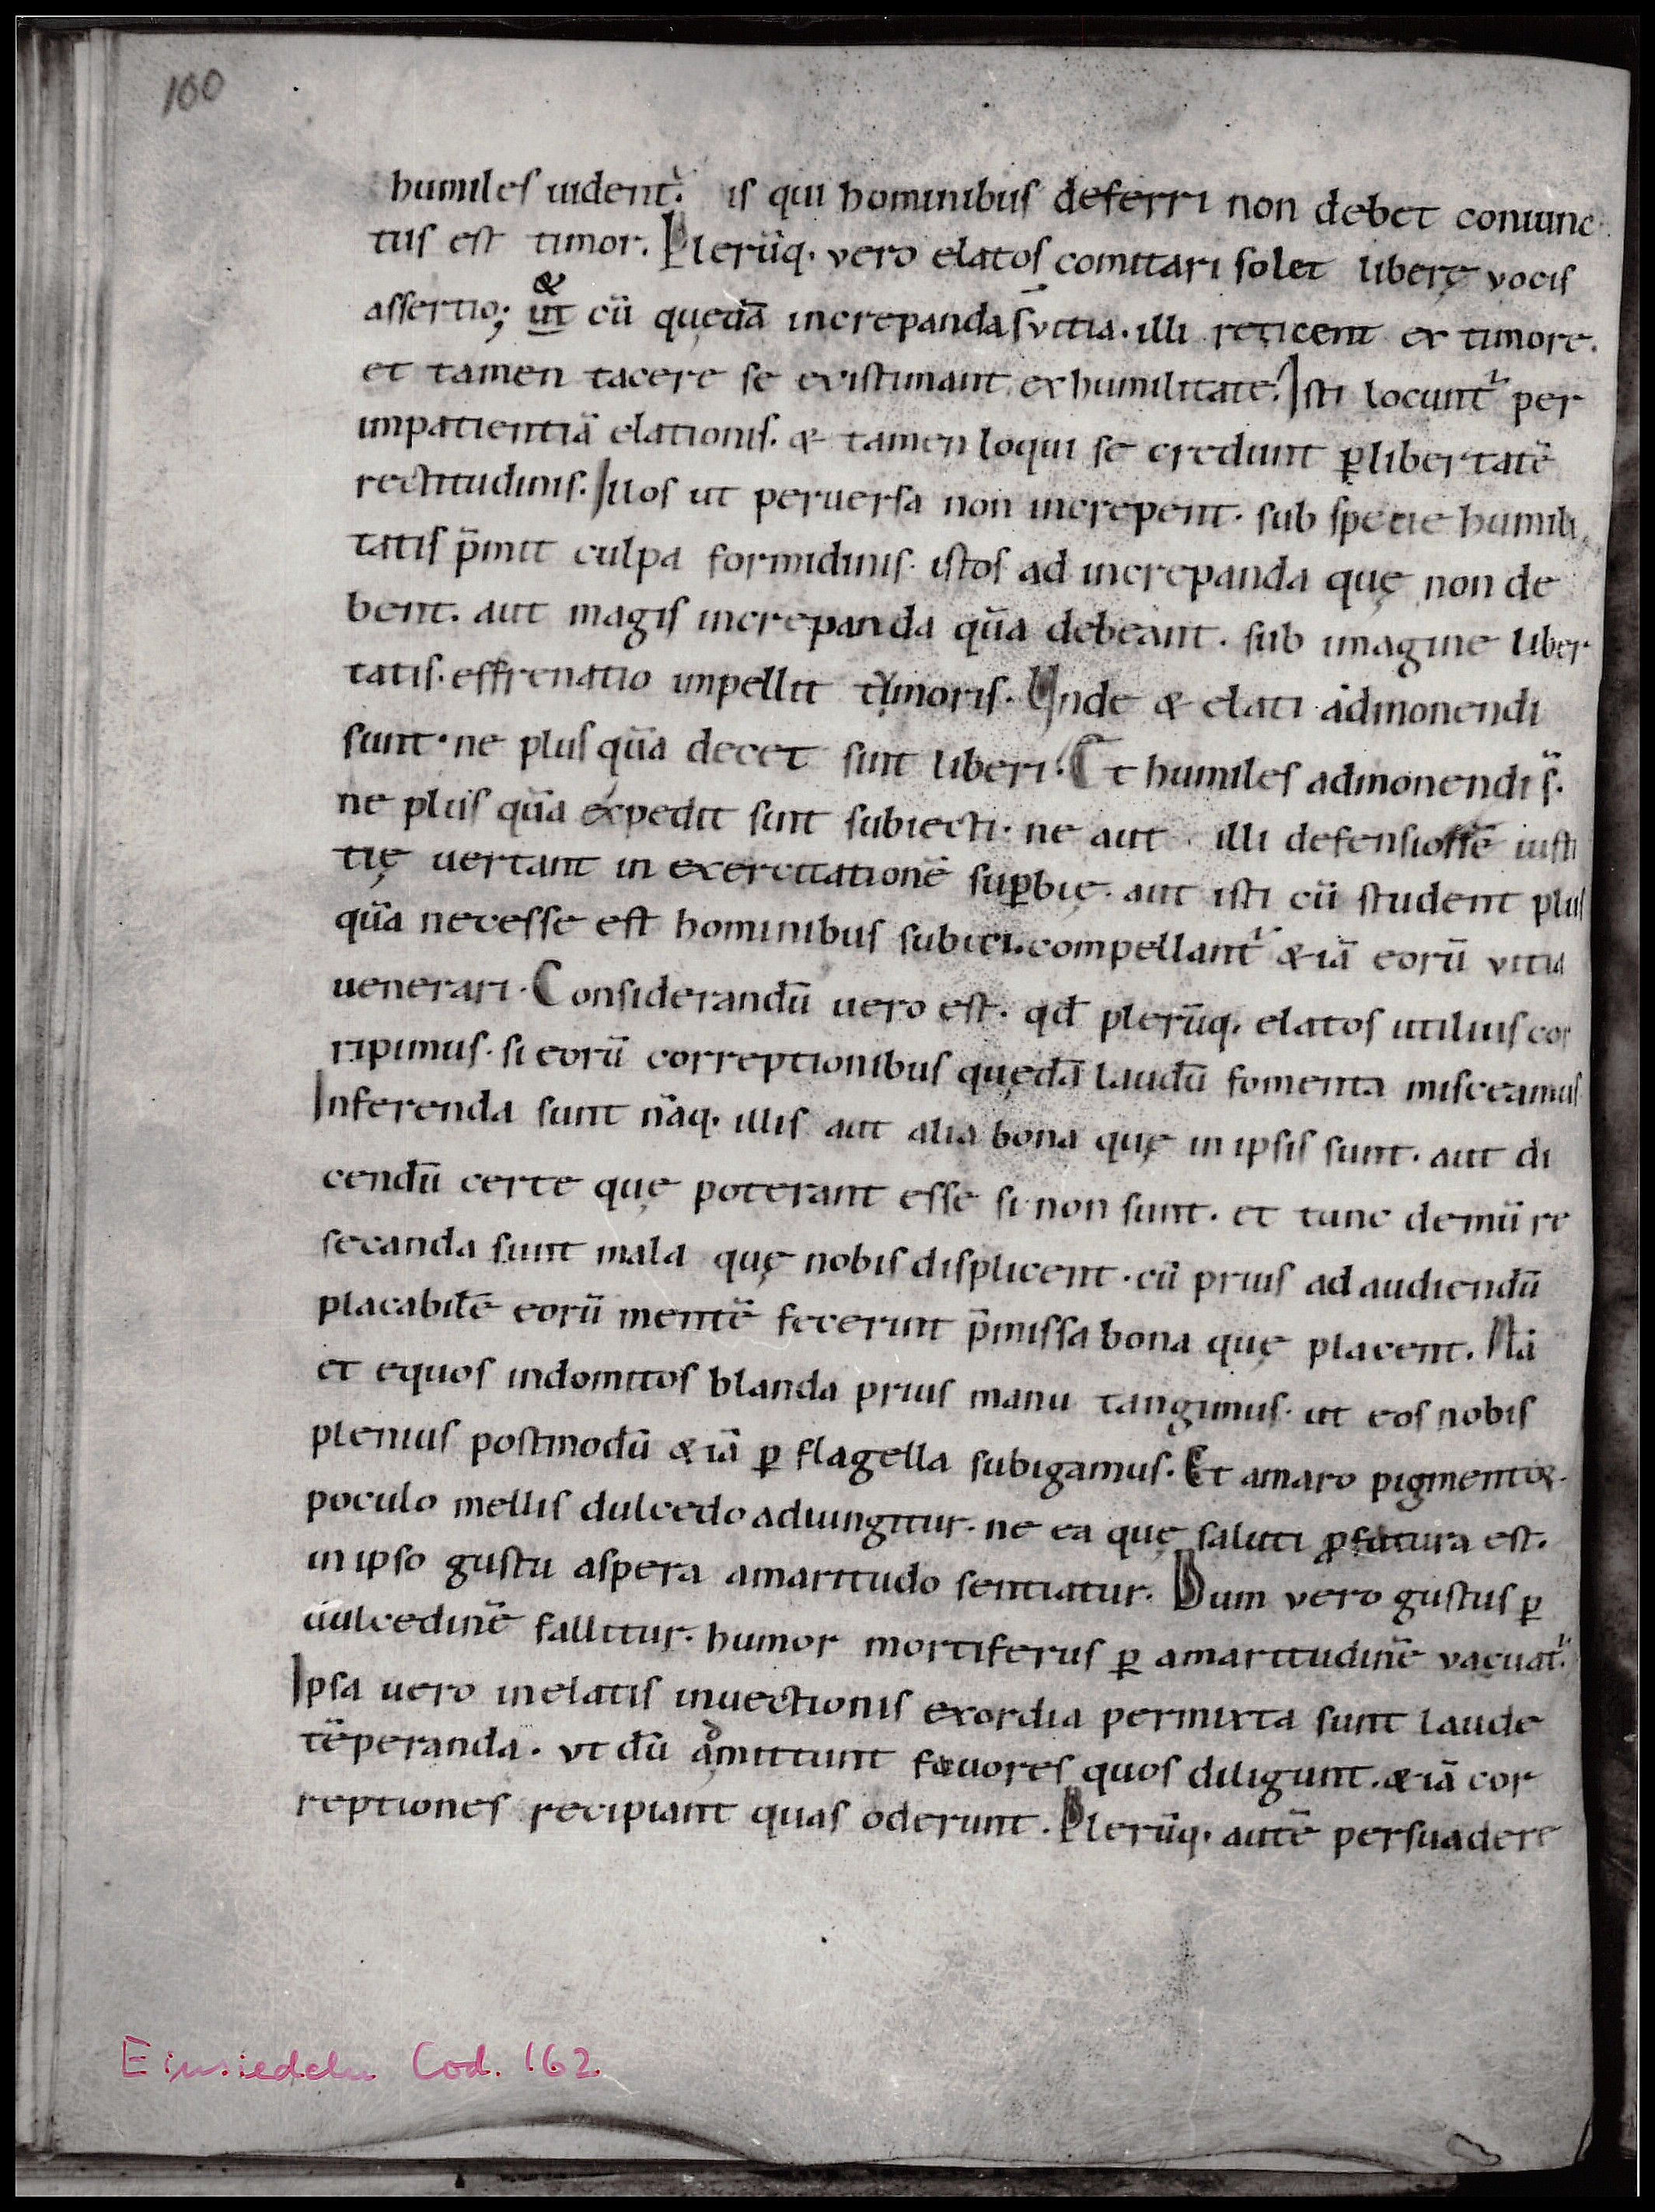 100
humiles uident᷑. is qui hominibus deferri non debet coniunc
tus est timor. Plerūq. vero elatos comitari solet liberę vocis
&
assertio; ut cū quędā increpanda s̄ vitia. illi reticent ex timore.
et tamen tacere se existimant ex humilitate. Isti locunt᷑ per
impatientiā elationis. & tamen loqui se credunt ꝑ libertatē
rectitudinis. Illos ut peruersa non increpent. sub specie humili
tatis p̄mit culpa formidinis. istos ad increpanda quę non de
bent. aut magis increpanda quā debeant. sub imagine liber
tatis. effrenatio impellit tymoris. Unde & elati admonendi
sunt. ne plus quā decet sint liberi. Et humiles admonendi s̄.
ne plus quā expedit sint subiecti. ne aut illi defensionē iusti
tię uertant in exercitationē suꝑbię. aut isti cū student plus
quā necesse est hominibus subici. compellant᷑ &iā eorū vitia
uenerari. Considerandū uero est. qd̄ plerūq. elatos utilius cor
ripimus. si eorū correptionibus quędā laudū fomenta misceamus
Inferenda sunt nāq. illis aut alia bona quę in ipsis sunt. aut di
cendū certe quę poterant esse si non sunt. et tunc demū re
secanda sunt mala quę nobis displicent. cū prius ad audiendū
placabilē eorū mentē fecerint p̄missa bona quę placent. Nā
et equos indomitos blanda prius manu tangimus. ut eos nobis
plenius postmodū &iā ꝑ flagella subigamus. Et amaro pigmentoꝝ
poculo mellis dulcedo adiungitur. ne ea quę saluti ꝓfutura est.
in ipso gustu aspera amaritudo sentiatur. Dum vero gustus ꝑ
dulcedinē fallitur. humor mortiferus ꝑ amaritudinē vacuat᷑.
Ipsa uero in elatis inuectionis exordia permixta sunt laude
tēperanda. vt dū admittunt fauores quos diligunt. &iā cor
reptiones recipiant quas oderunt. Plerūq. autē persuadere
Einsiedeln Cod. 162